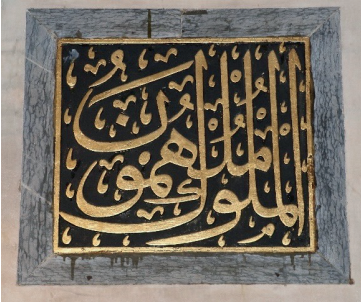 الملوك ملهمون